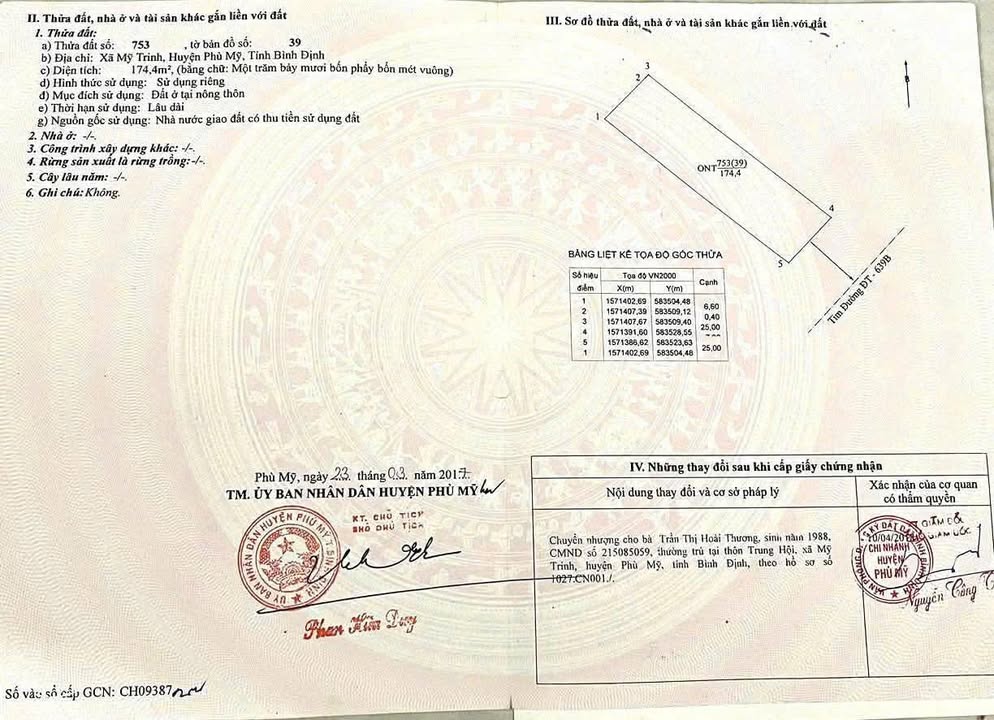 II. Thửa đất, nhà ở và tài sản khác gắn liền với đất
1. Thửa đất:
a) Thửa đất số: 753 , tờ bản đồ số: 39
b) Địa chỉ: Xã Mỹ Trinh, Huyện Phù Mỹ, Tỉnh Bình Định
c) Diện tích: 174,4m², (bằng chữ: Một trăm bảy mươi bốn phẩy bốn mét vuông)
d) Hình thức sử dụng: Sử dụng riêng
đ) Mục đích sử dụng: Đất ở tại nông thôn
e) Thời hạn sử dụng: Lâu dài
g) Nguồn gốc sử dụng: Nhà nước giao đất có thu tiền sử dụng đất
2. Nhà ở: -/-.
3. Công trình xây dựng khác: -/-.
4. Rừng sản xuất là rừng trồng:-/-.
5. Cây lâu năm: -/-.
6. Ghi chú: Không.
Phù Mỹ, ngày 23 tháng 03 năm 2017
TM. ỦY BAN NHÂN DÂN HUYỆN PHÙ MỸ
KT. CHỦ TỊCH
PHÓ CHỦ TỊCH
ỦY BAN NHÂN DÂN HUYỆN PHÙ MỸ T. BÌNH ĐỊNH
Phan
Số vào sổ cấp GCN: CH09387
III. Sơ đồ thửa đất, nhà ở và tài sản khác gắn liền với đất
B
3
2
1
ONT 753(39)
174,4
4
5
Tim Đường ĐT - 639B
BẢNG LIỆT KÊ TỌA ĐỘ GÓC THỬA
Số hiệu điểm Tọa độ VN2000 Cạnh
X(m) Y(m)
1 1571402,69 583504,48
6,60
2 1571407,39 583509,12
0,40
3 1571407,67 583509,40
25,00
4 1571391,60 583528,55
5 1571386,62 583523,63
25,00
1 1571402,69 583504,48
IV. Những thay đổi sau khi cấp giấy chứng nhận
Nội dung thay đổi và cơ sở pháp lý
Xác nhận của cơ quan
có thẩm quyền
Chuyển nhượng cho bà Trần Thị Hoài Thương, sinh năm 1988,
CMND số 215085059, thường trú tại thôn Trung Hội, xã Mỹ
Trinh, huyện Phù Mỹ, tỉnh Bình Định, theo hồ sơ số
1027.CN001./.
GIÁM ĐỐC
GIÁM ĐỐC
CHI NHÁNH
HUYỆN
PHÙ MỸ
Nguyễn Công